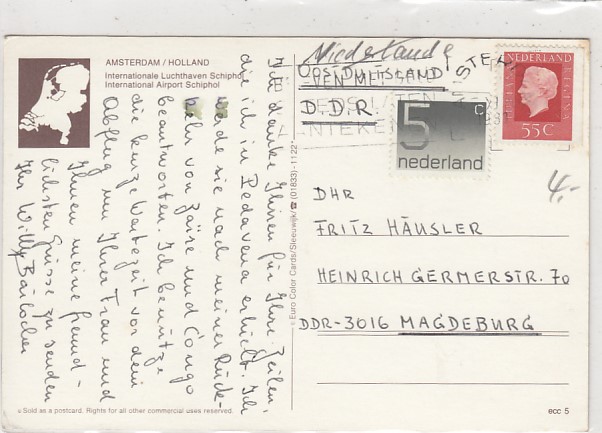 AMSTERDAM / HOLLAND
Internationale Luchthaven Schiphol
International Airport Schiphol
Ich danke Ihnen für Ihre Zeilen,
die ich in Pedavena erhielt. Ich
werde sie nach meiner Rück-
kehr von Zaïre und Congo
beantworten. Ich benütze
die kurze Wartezeit vor dem
Abflug um Ihrer Frau und
Ihnen meine freund-
lichsten Grüsse zu senden
Ihr Willy Bärlocher
© Euro Color Cards/Sleeuwijk/☎ (01833)-1122*
Niederlande
OOSTDUITSLAND
D.D.R.
5c
nederland
NEDERLAND
55c
4,-
DHR
FRITZ HÄUSLER
HEINRICH GERMERSTR. 70
DDR-3016 MAGDEBURG
Sold as a postcard. Rights for all other commercial uses reserved.
ecc 5